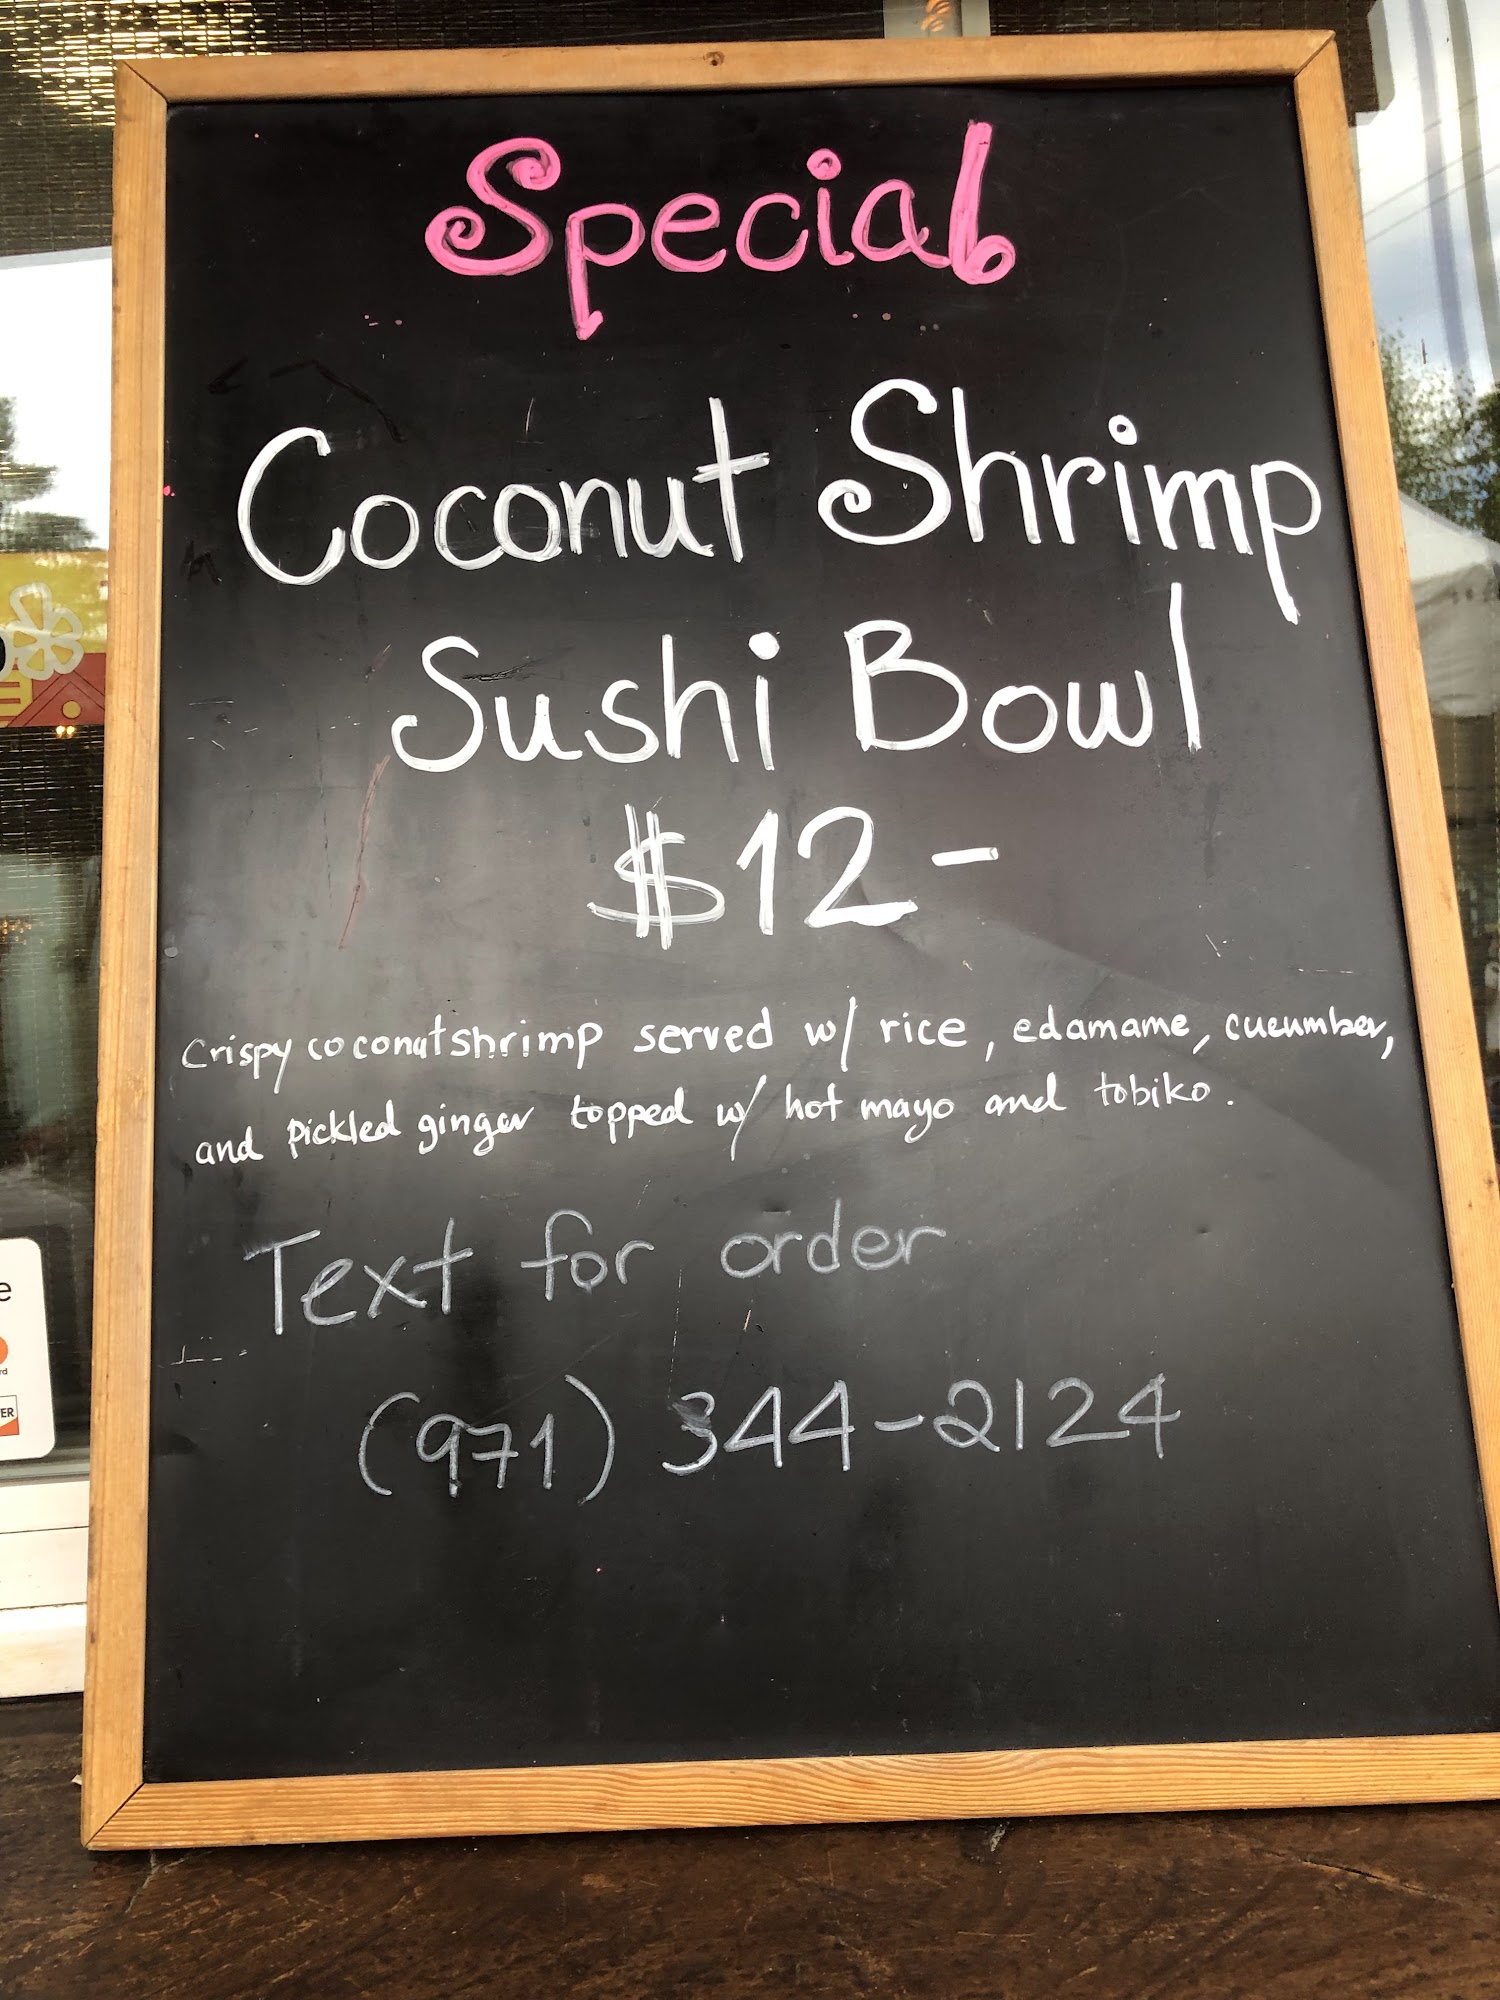 Special
Coconut Shrimp
Sushi Bowl
$12-
crispy coconut shrimp served w/ rice, edamame, cucumber,
and pickled ginger topped w/ hot mayo and tobiko.
Text for order
(971) 344-2124
e
rd
ER